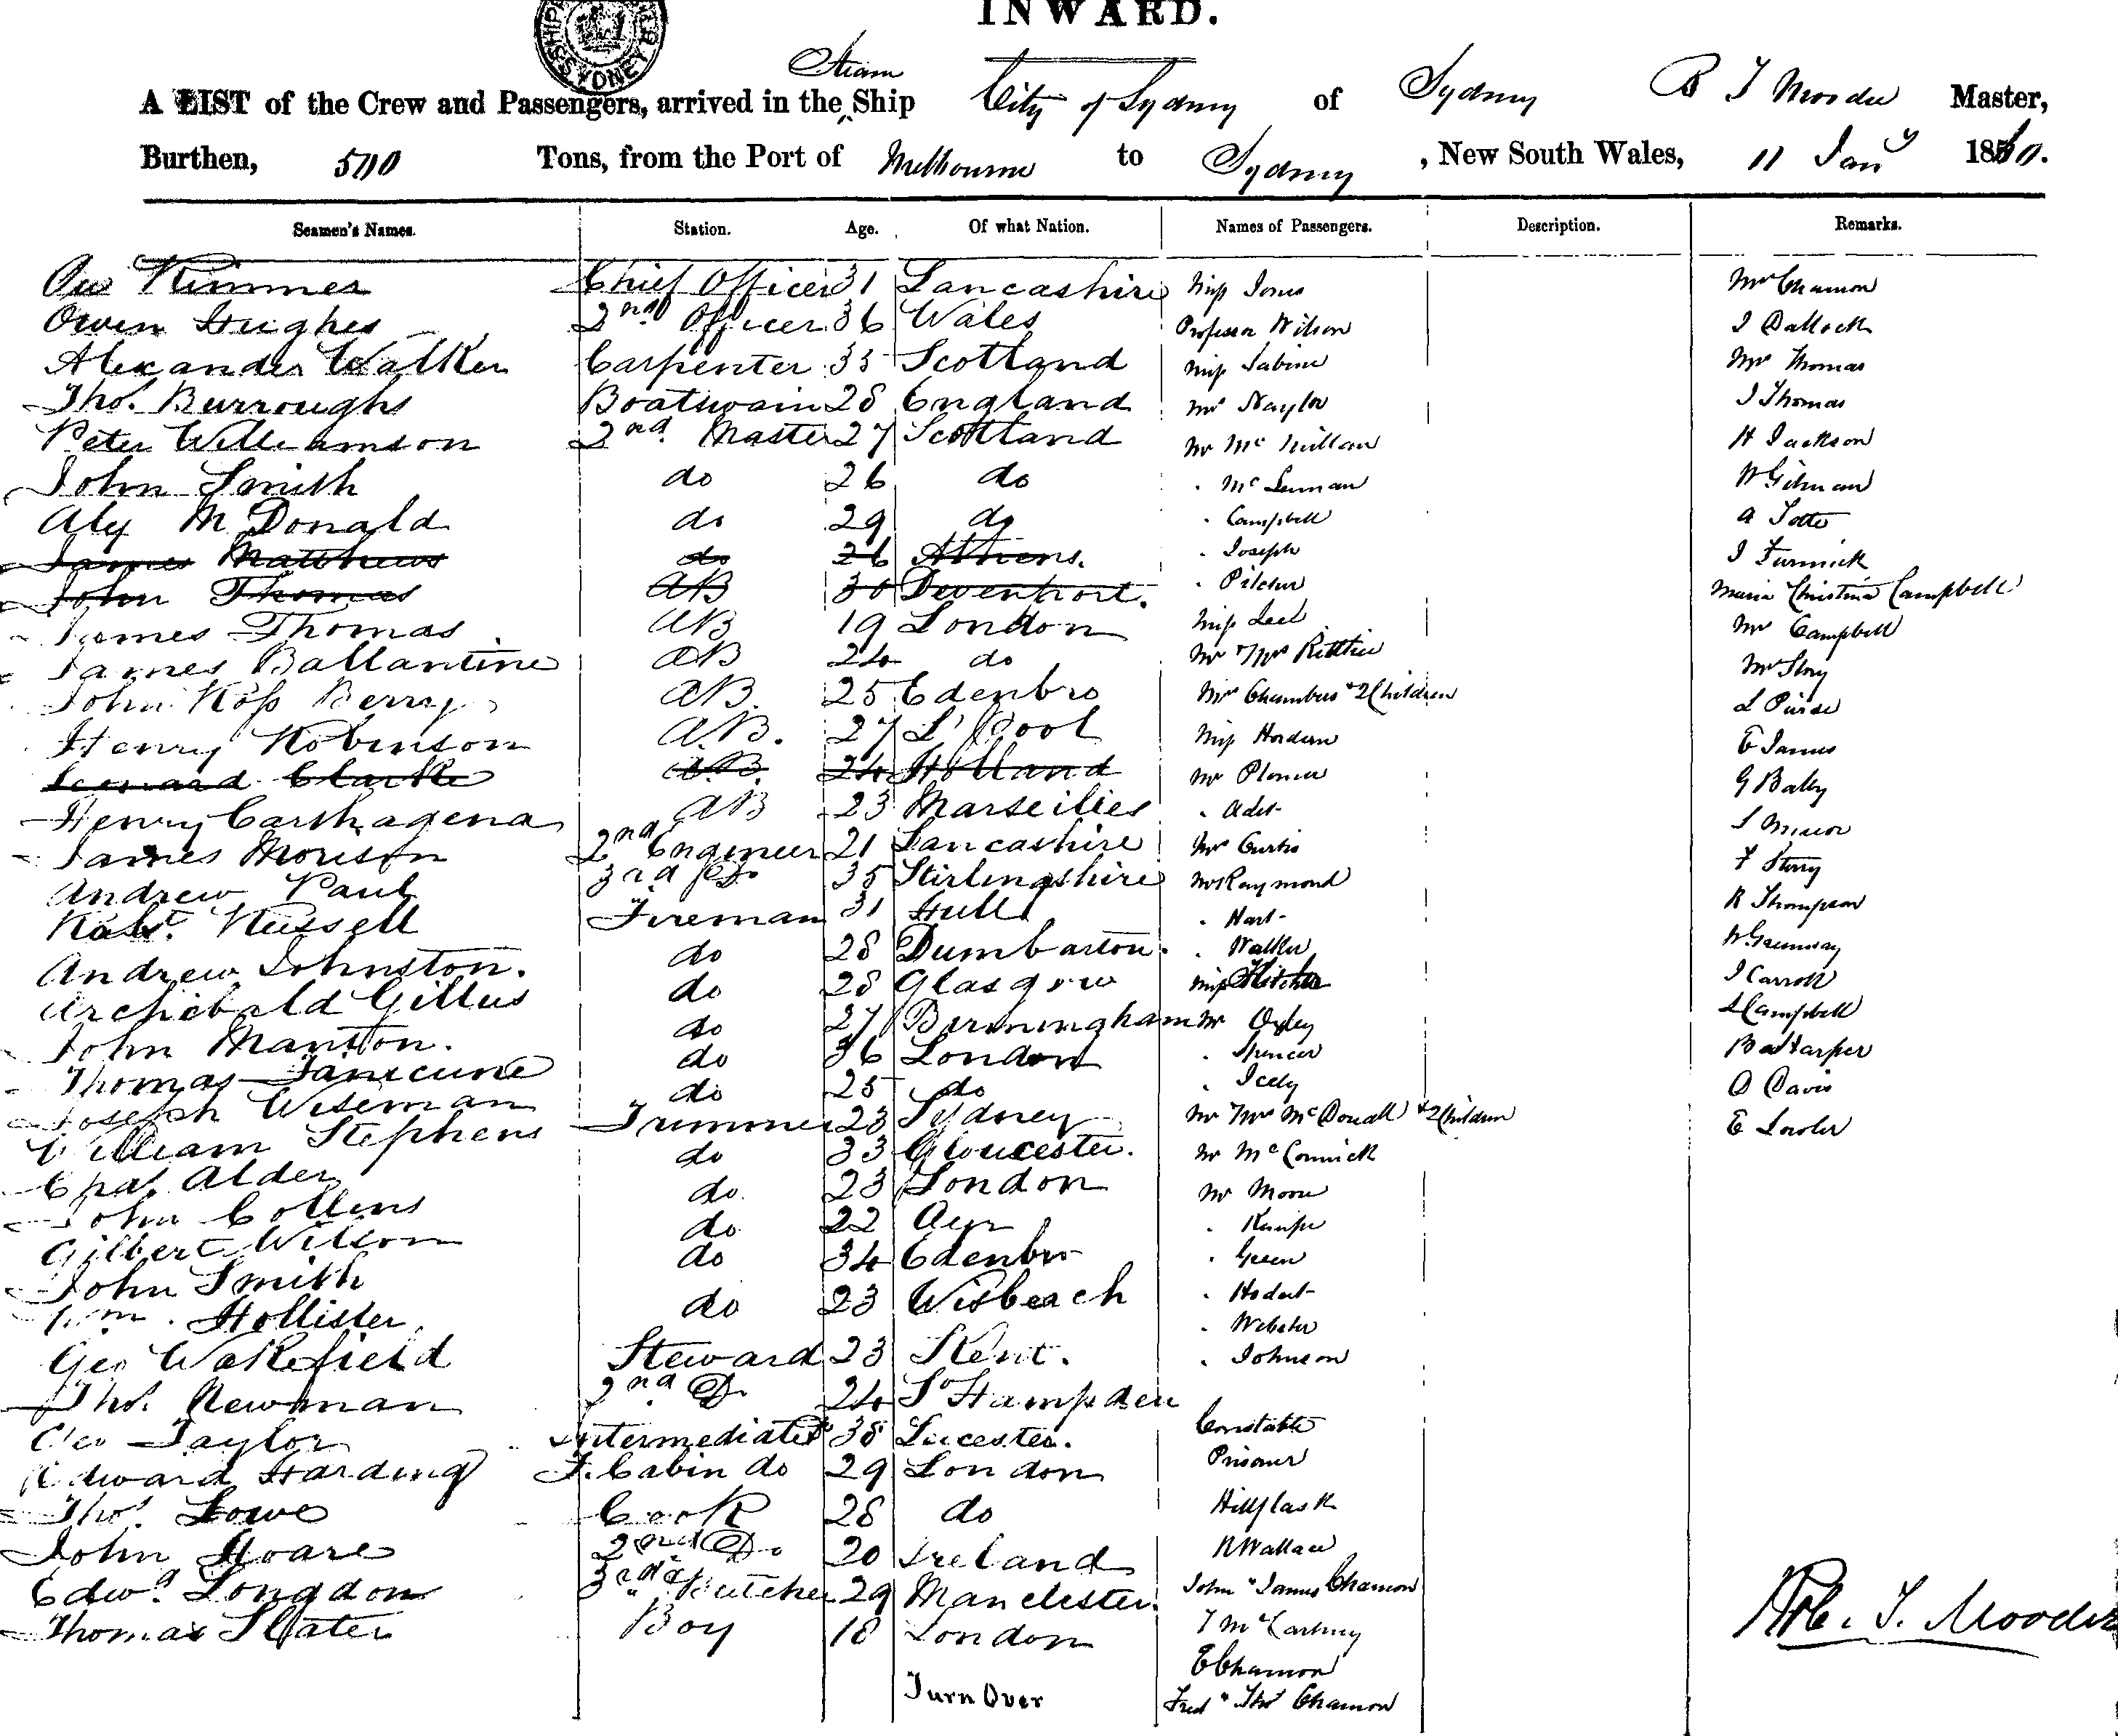 INWARD.
SYDNEY
Steam
A LIST of the Crew and Passengers, arrived in the Ship City of Sydney of Sydney R T Moodie Master,
Burthen, 500 Tons, from the Port of Melbourne to Sydney, New South Wales, 11 Jany 1860.
Seamen's Names. Station. Age. Of what Nation. Names of Passengers. Description. Remarks.
Chief Officer 31 Lancashire Miss Jones Mrs Chamon
Owen Hughes 2nd Officer 36 Wales Professor Wilson J
Alexander Walker Carpenter 35 Scotland Miss Sabine Mrs Thomas
Thos. Burroughs Boatswain 28 England Mrs Naylor J Thomas
Peter Williamson 2nd Master 27 Scotland Mr H Jackson
John Smith do 26 do " McLennan W
Alex McDonald do 29 do " Campbell A
James Matthews do 26 Athens. " Joseph J
John Thomas AB 30 Devenport. " Maria Christina Campbell
James Thomas AB 19 London Miss Mrs Campbell
James Ballantine AB 24 do Mr & Mrs Mr Story
John Ross Berry AB. 25 Edenbro Mrs Chambers & 2 Children
Henry Robinson A.B. 27 L'Pool Miss Hordern E James
Clarke A.B. 24 Holland Mr G
Henry Carthagena AB 23 Marseilles "
James Morison 2nd Engineer 21 Lancashire Mr Curtis F Storry
Andrew Paul 3rd Do 35 Stirlingshire Mr Raymond R Thompson
Robt. Russell Fireman 31 Hull " Hart W
Andrew Johnston. do 28 Dumbarton. " Walker J Carroll
Archibald Gillus do 28 Glasgow Miss Campbell
John Manton. do 27 Birmingham Mr Oxley Harper
Thomas do 36 London " Spencer D Davis
Joseph Wiseman do 25 do " Icely E Lawler
William Stephens Trimmer 23 Sydney Mr & Mrs McDonall & 2 Children
Chas. Alder do 33 Gloucester. Mr McCormick
John Collins do 23 London Mr Moore
Gilbert Wilson do 22 Ayr "
John Smith do 34 Edenbro " Green
Wm. Hollister do 23 Wisbeach "
" Webster
Geo Wakefield Steward 23 Kent. " Johnson
Thos. Newman 2nd Do 24 So Hampden
Geo Taylor Intermediate 38 Leicester. Constable
Edward Harding F. Cabin do 29 London Prisoner
Thos. Lowe Cook 28 do
John Hoare 2nd Do. 20 Ireland R Wallace
Edwd. Longdon 3rd & Butcher 29 Manchester. John " James Chamon
Thomas Slater Boy 18 London T McCartney
E Chamon
Turn Over Fred " Thos Chamon
Rob. T. Moodie